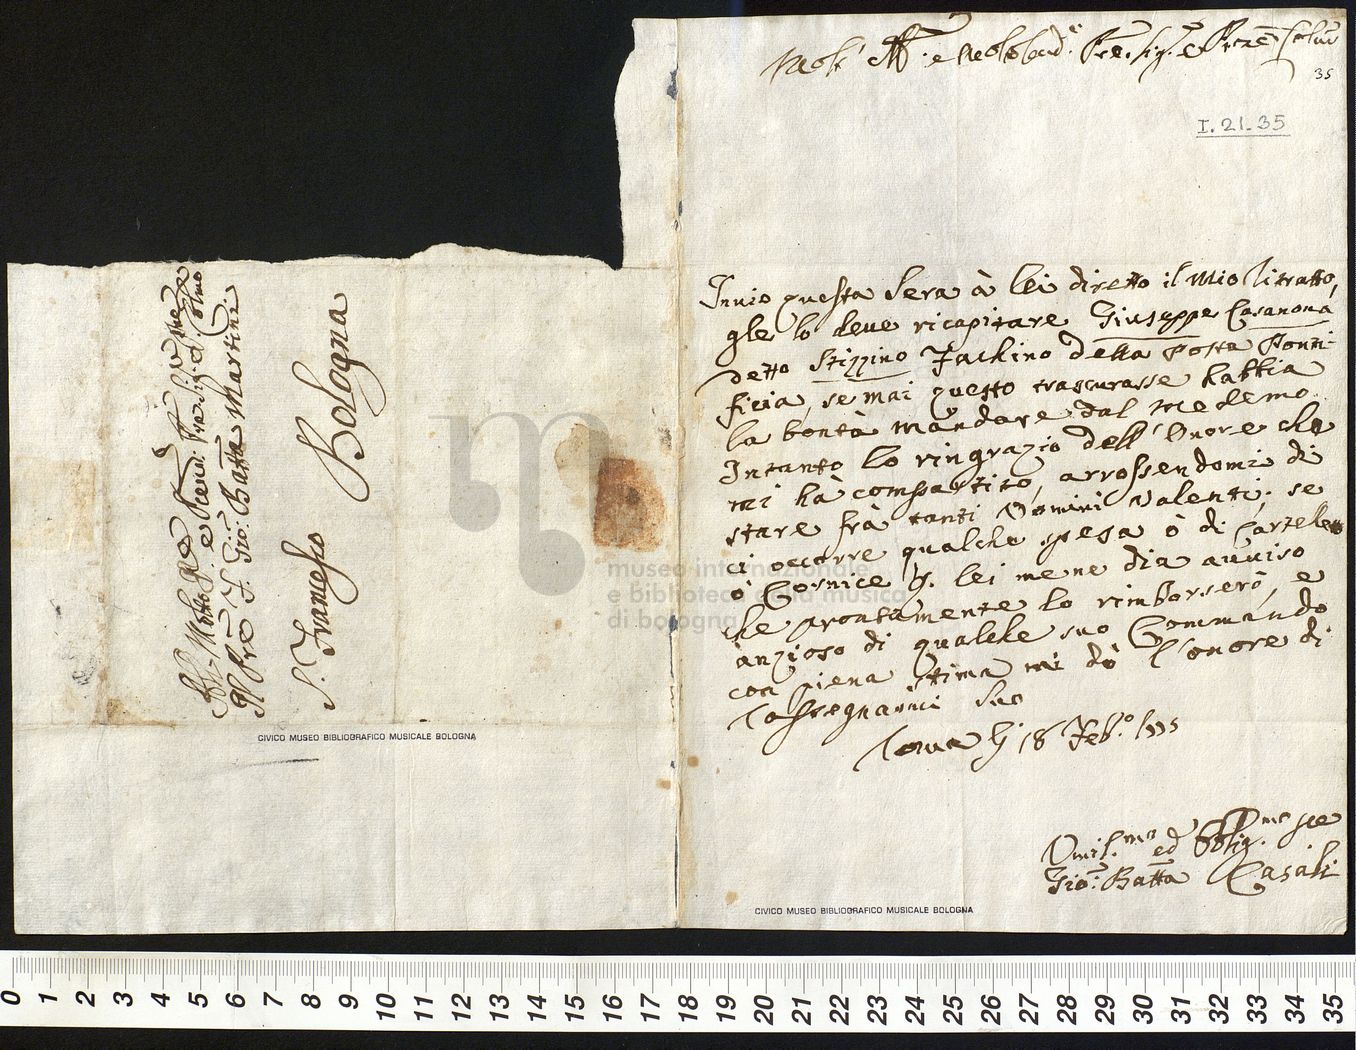 Molt Ill. e Molto Rev. Pre. Sig. e Prone Colmo
35
I. 21-35
Inuio questa Sera à lei diretto il Mio Ritratto,
gle lo deue ricapitare Giuseppe Casanoua
detto Stizzino Fachino della Posta Ponti-
ficia, se mai questo trascurasse habbia
la bontà mandare dal medemo
Intanto lo ringrazio dell'Onore che
mi hà compartito, arrossendomi di
stare frà tanti Uomini Valenti; se
ci occorre qualche spesa ò di Cartello
ò Cornice p. lei mene dia auuiso
che prontamente lo rimborserò, e
anzioso di qualche suo Commando
con piena stima mi dò l'onore di
rassegnarmi Suo
Roma li 18 Feb.o
Umil.mo ed Obblig.mo
Gio: Batta Casali
CIVICO MUSEO BIBLIOGRAFICO MUSICALE BOLOGNA
Al Molto e Reud: Pre. Sig. Colmo
Il Pre F. Gio: Batta Martini
S. Francesco Bologna
CIVICO MUSEO BIBLIOGRAFICO MUSICALE BOLOGNA
museo internazionale
e biblioteca della musica
di bologna
0 1 2 3 4 5 6 7 8 9 10 11 12 13 14 15 16 17 18 19 20 21 22 23 24 25 26 27 28 29 30 31 32 33 34 35